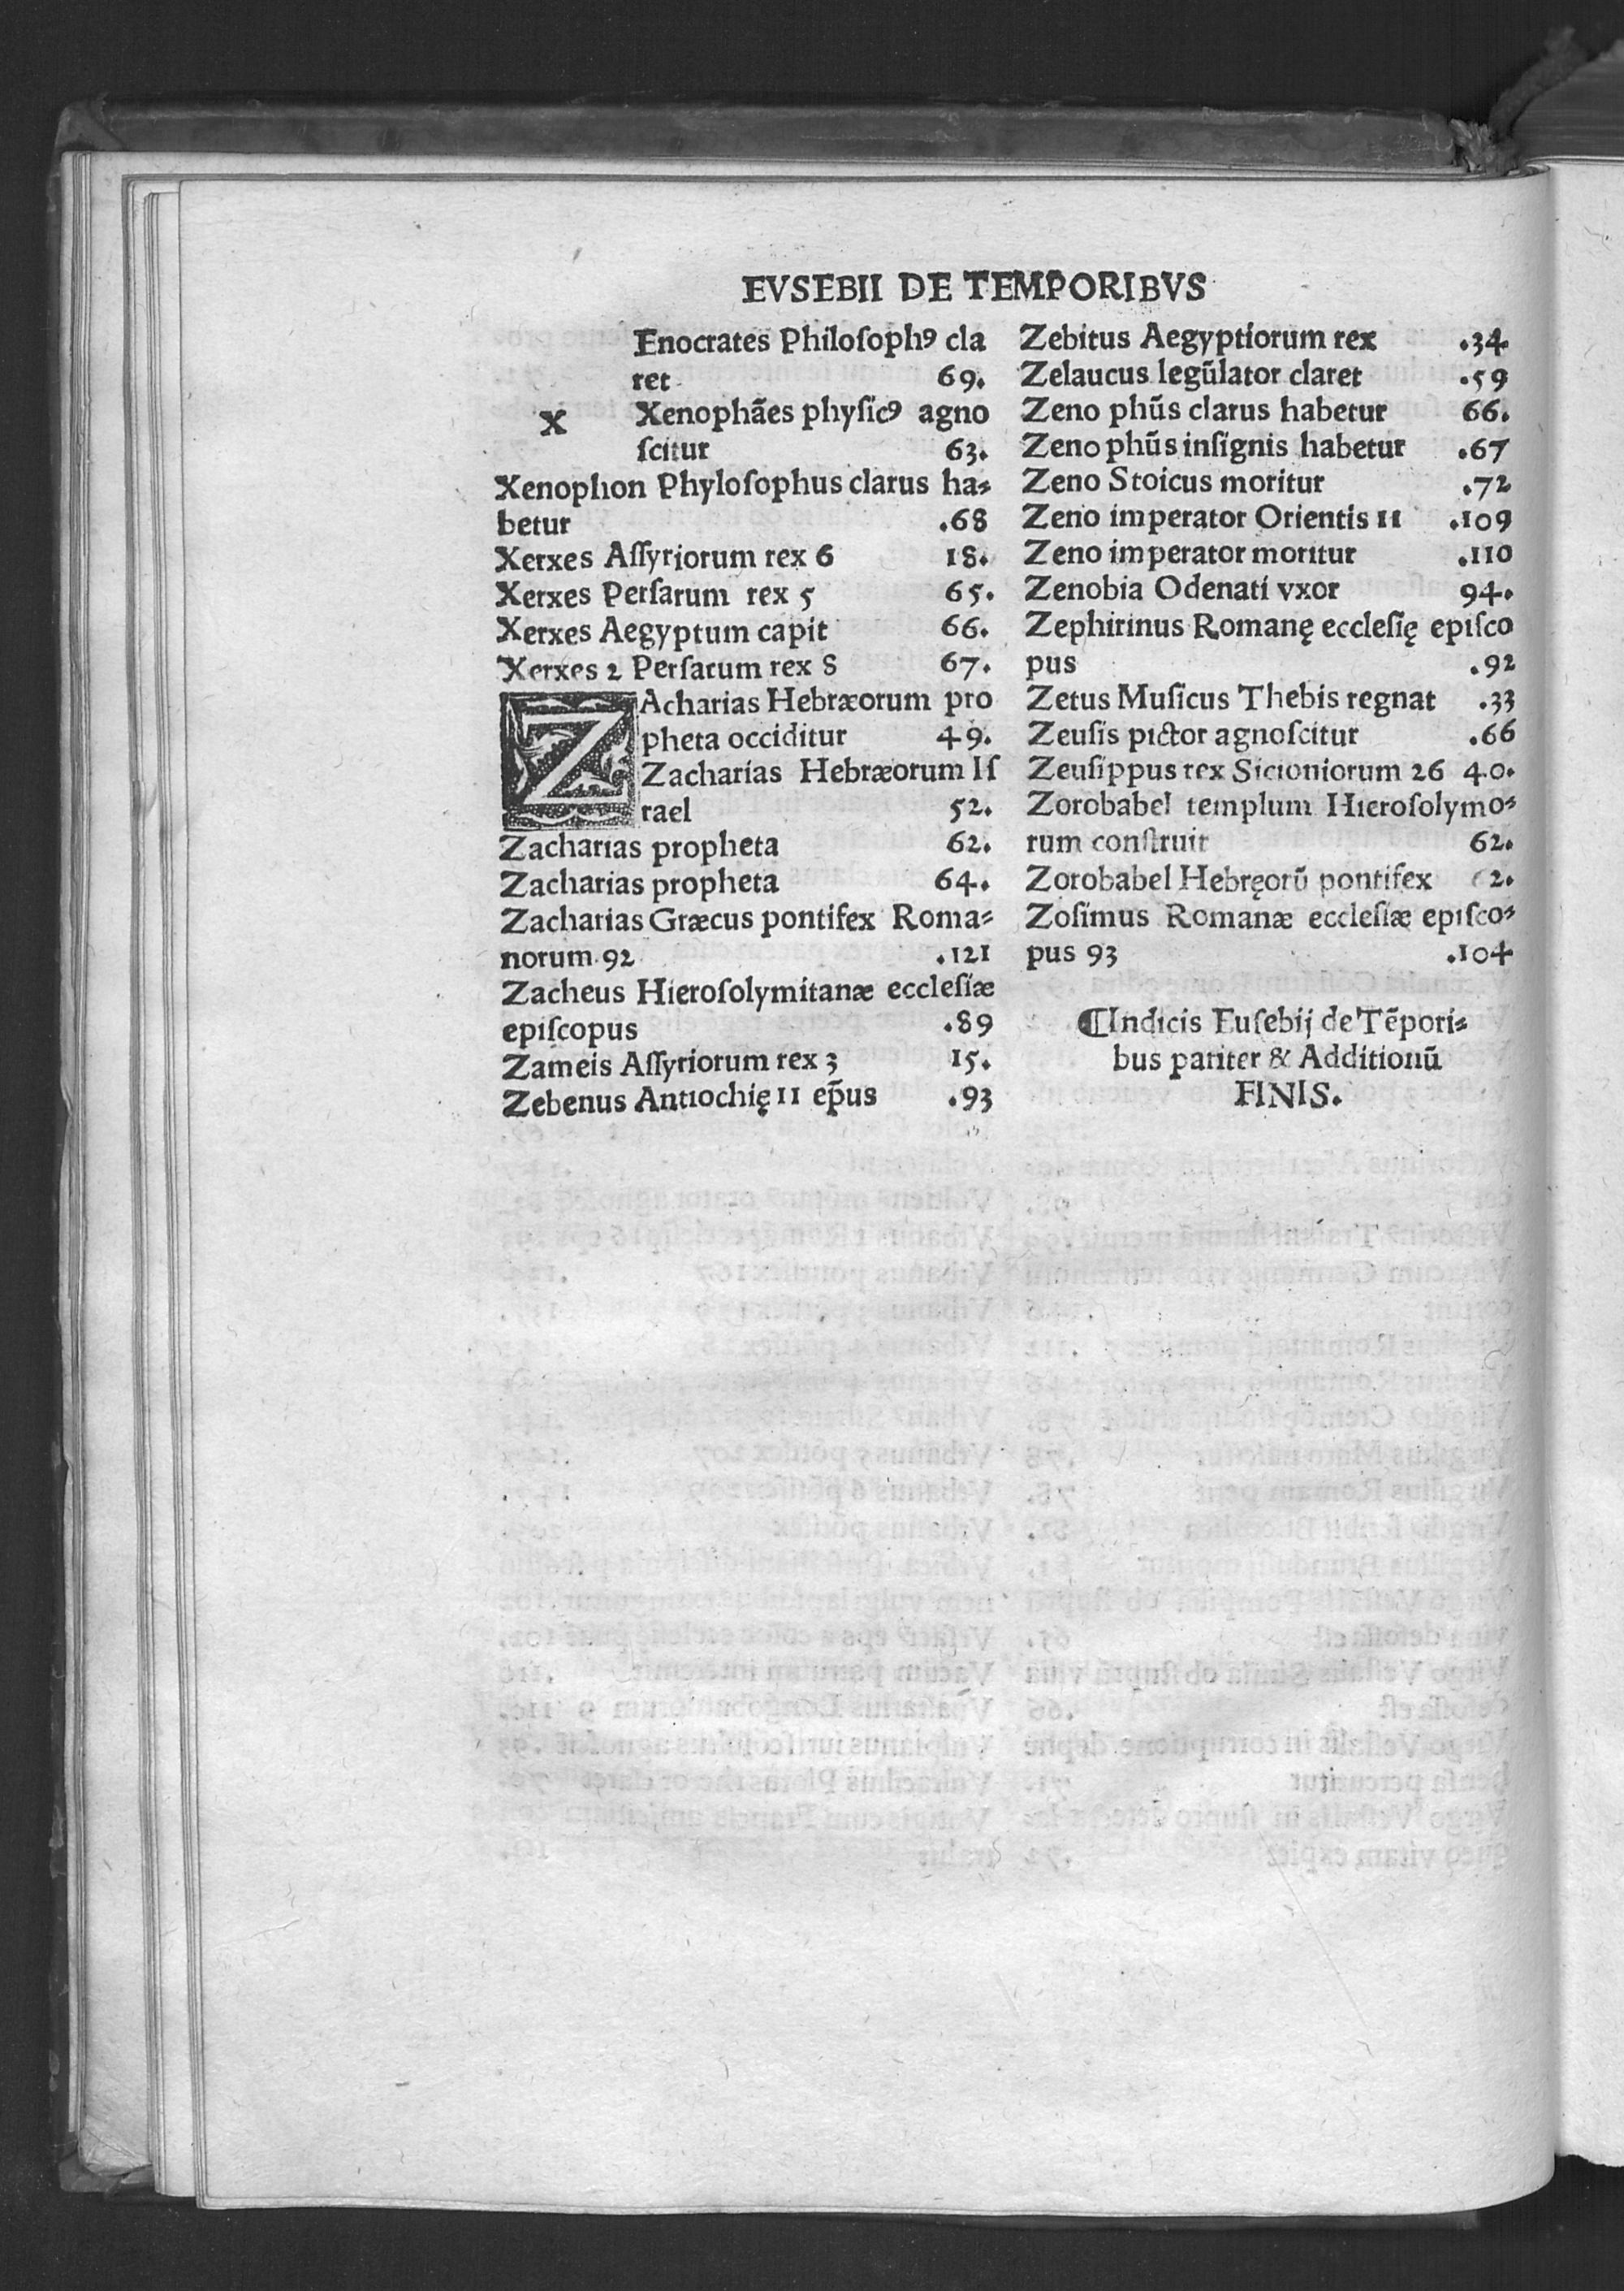 EVSEBII DE TEMPORIBVS
X
Enocrates Philoſophꝰ cla
ret 69.
Xenophães phyſicꝰ agno
ſcitur 63.
Xenophon Phyloſophus clarus ha⸗
betur .68
Xerxes Aſſyriorum rex 6 18.
Xerxes Perſarum rex 5 65.
Xerxes Aegyptum capit 66.
Xerxes 2 Perſarum rex 8 67.
ZAcharias Hebræorum pro
pheta occiditur 49.
Zacharias Hebræorum Iſ
rael 52.
Zacharias propheta 62.
Zacharias propheta 64.
Zacharias Græcus pontifex Roma⸗
norum 92 .121
Zacheus Hieroſolymitanæ eccleſiæ
epiſcopus .89
Zameis Aſſyriorum rex 3 15.
Zebenus Antiochię 11 ep̃us .93
Zebitus Aegyptiorum rex .34.
Zelaucus legũlator claret .59
Zeno phũs clarus habetur 66.
Zeno phũs inſignis habetur .67
Zeno Stoicus moritur .72
Zeno imperator Orientis 11 .109
Zeno imperator moritur .110
Zenobia Odenati vxor 94.
Zephirinus Romanę eccleſię epiſco
pus .92
Zetus Muſicus Thebis regnat .33
Zeuſis pictor agnoſcitur .66
Zeuſippus rex Sicioniorum 26 40.
Zorobabel templum Hieroſolymo⸗
rum conſtruit 62.
Zorobabel Hebręorũ pontifex 2.
Zoſimus Romanæ eccleſiæ epiſco⸗
pus 93 .104
¶Indicis Euſebij de Tẽpori⸗
bus pariter & Additionũ
FINIS.